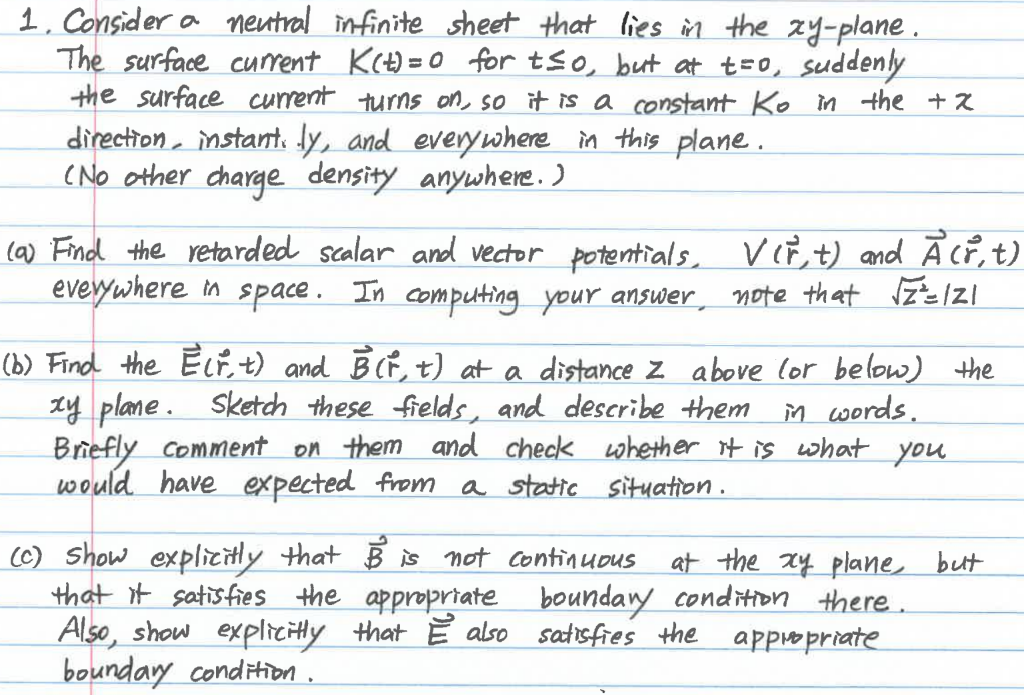 1. Consider a neutral infinite sheet that lies in the xy-plane.
The surface current K(t)=0 for t≤0, but at t=0, suddenly
the surface current turns on, so it is a constant K₀ in the +x
direction, and everywhere in this plane.
(No other charge density anywhere.)
(a) Find the retarded scalar and vector potentials, V(r⃗,t) and A⃗(r⃗,t)
everywhere in space. In computing your answer, note that √z²=|z|
(b) Find the E⃗(r⃗,t) and B⃗(r⃗,t) at a distance z above (or below) the
xy plane. Sketch these fields, and describe them in words.
Briefly comment on them and check whether it is what you
would have expected from a static situation.
(c) Show explicitly that B⃗ is not continuous at the xy plane, but
that it satisfies the appropriate boundary condition there.
Also, show explicitly that E⃗ also satisfies the appropriate
boundary condition.